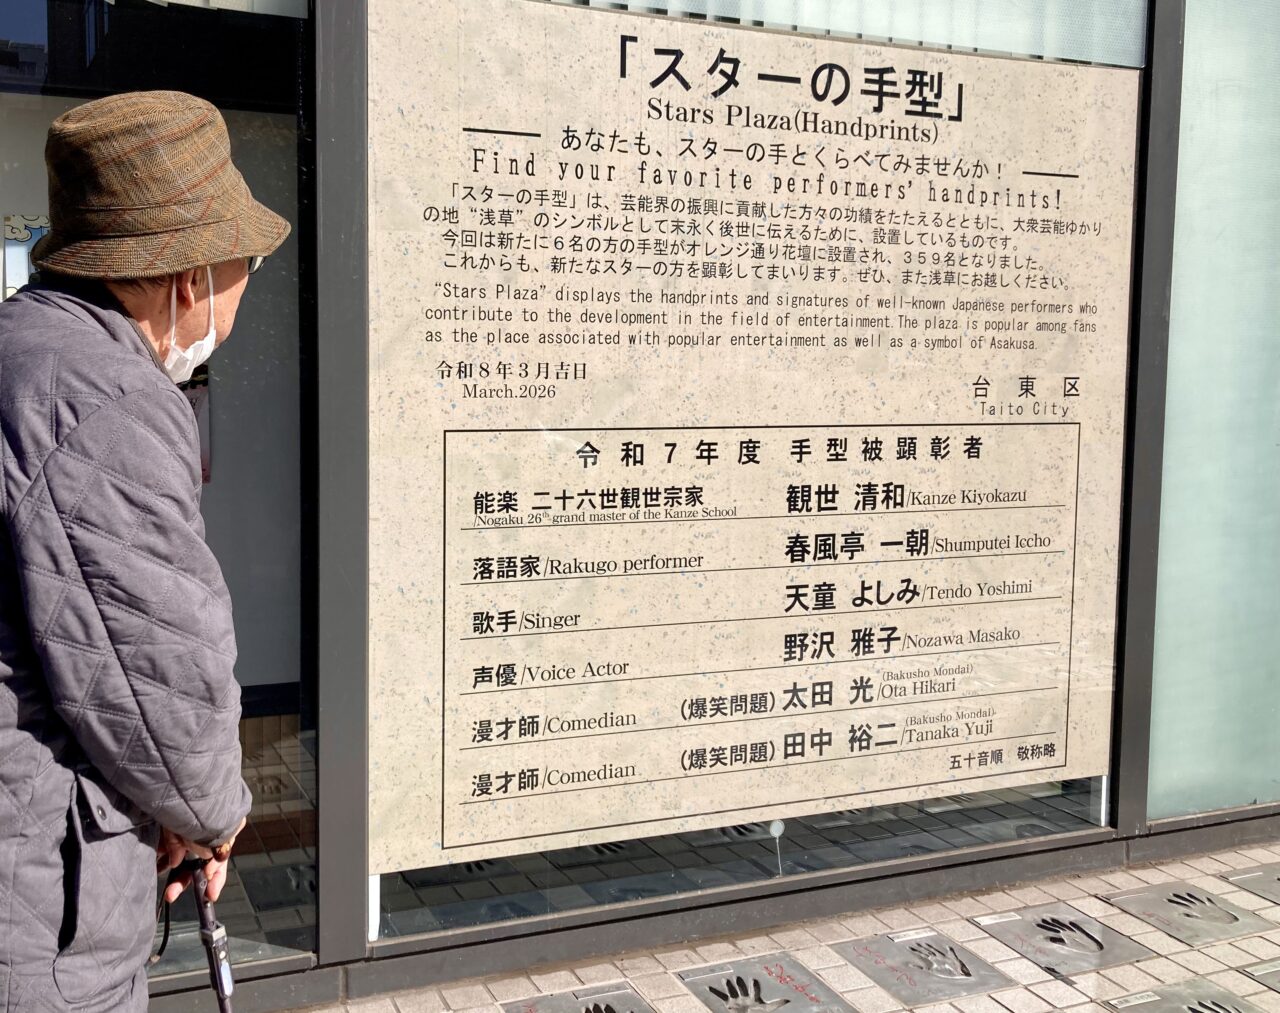 「スターの手型」
Stars Plaza(Handprints)
あなたも、スターの手とくらべてみませんか！
Find your favorite performers' handprints!
「スターの手型」は、芸能界の振興に貢献した方々の功績をたたえるとともに、大衆芸能ゆかり
の地“浅草”のシンボルとして末永く後世に伝えるために、設置しているものです。
今回は新たに６名の方の手型がオレンジ通り花壇に設置され、３５９名となりました。
これからも、新たなスターの方を顕彰してまいります。ぜひ、また浅草にお越しください。
“Stars Plaza” displays the handprints and signatures of well-known Japanese performers who
contribute to the development in the field of entertainment.The plaza is popular among fans
as the place associated with popular entertainment as well as a symbol of Asakusa.
令和８年３月吉日
March.2026
台東区
Taito City
令和７年度 手型被顕彰者
能楽 二十六世観世宗家 観世 清和/Kanze Kiyokazu
/Nogaku 26th grand master of the Kanze School
落語家/Rakugo performer 春風亭 一朝/Shumputei Iccho
歌手/Singer 天童 よしみ/Tendo Yoshimi
声優/Voice Actor 野沢 雅子/Nozawa Masako
漫才師/Comedian (爆笑問題) 太田 光/Ota Hikari (Bakusho Mondai)
漫才師/Comedian (爆笑問題) 田中 裕二/Tanaka Yuji (Bakusho Mondai)
五十音順 敬称略